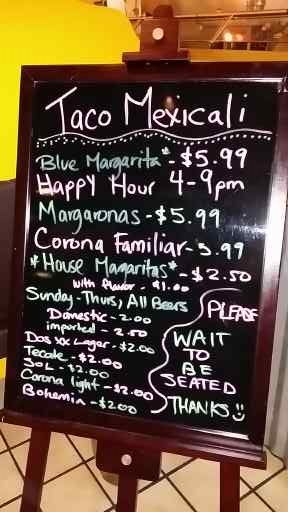 Taco Mexicali
Blue Margarita* - $5.99
Happy Hour 4-9pm
Margaronas - $5.99
Corona Familiar - 5.99
*House Margaritas* - $2.50
with flavor - $1.00
Sunday - Thurs, All Beers
Domestic - 2.00
imported - 2.50
Dos XX Lager - $2.00
Tecate - $2.00
Sol - $2.00
Corona light - $2.00
Bohemia - $2.00
PLEASE
WAIT
TO
BE
SEATED
THANKS